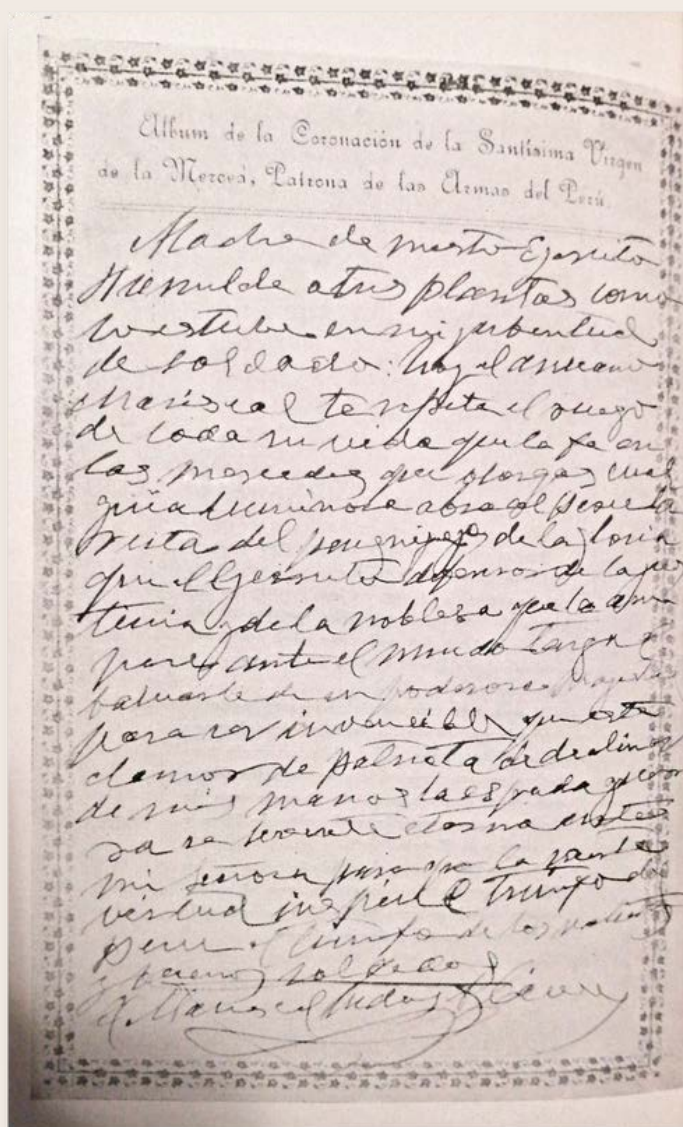 Album de la Coronación de la Santísima Virgen
de la Merced, Patrona de las Armas del Perú.
Madre de nuestro Ejercito
Humilde a tus plantas como
lo estube en mi jubentud
de soldado: hoy el anciano
Mariscal te repite el ruego
de toda su vida que la fe en
las mercedes que otorgas cual
guia luminosa abra al Peru la
ruta del de la gloria
que el Ejercito defensor de la
y de la noblesa que la am
pare ante el mundo tenga
baluarte de un poderoso
para ser invencible que este
clamor de patriota
de mis manos la espada
sa se levante eterna ante
mi señora para que la
virtud inspire el triunfo del
Peru el triunfo de los
y buenos soldados
El Mariscal Andres A Caceres